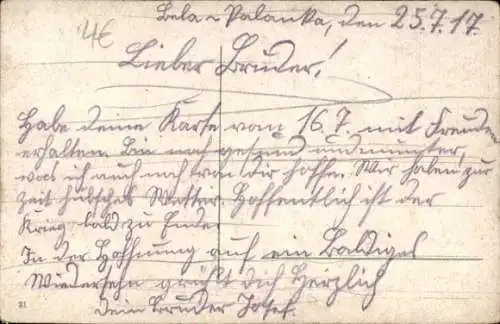 4€
Bela-Palanka, den 25.7.17.
Lieber Bruder!
Habe deine Karte vom 16.7. mit Freude
erhalten. Bin noch gesund und munter,
was ich auch noch von dir hoffe. Wir haben zur
Zeit hübsches Wetter. Hoffentlich ist der
Krieg bald zu Ende.
In der Hoffnung auf ein Baldiges
Wiedersehn grüßt dich Herzlich
dein Bruder Josef.
21